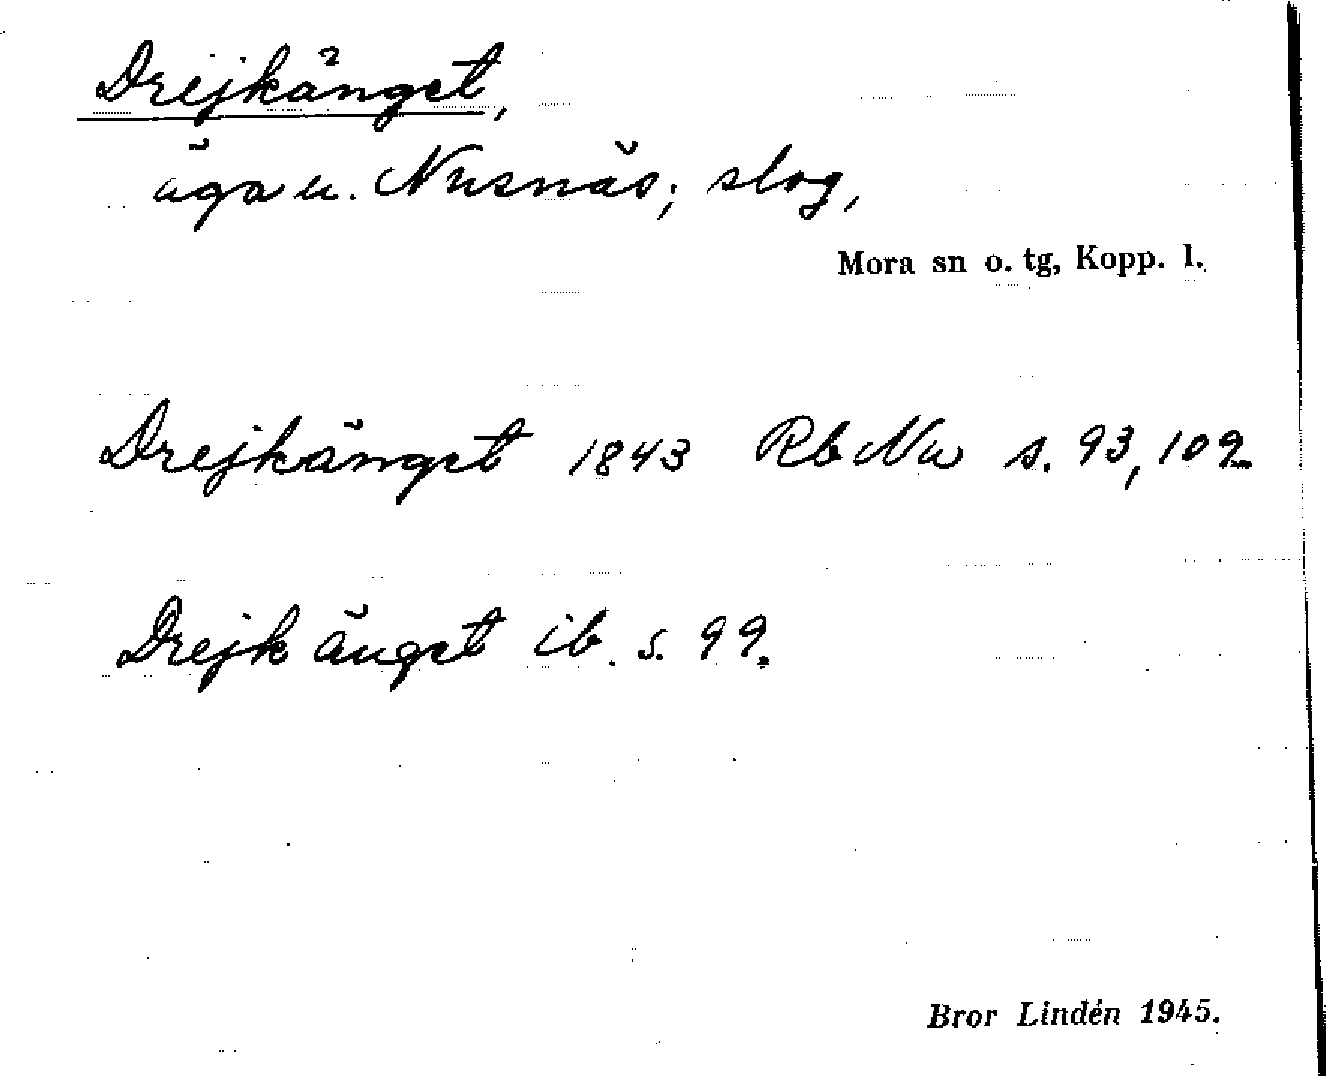 Drejkänget,
äga u. Nusnäs; slog,
Mora sn o. tg, Kopp. l.
Drejkänget 1843 Rb Nu s. 93, 102
Drejk änget ib. s. 99.
Bror Lindén 1945.